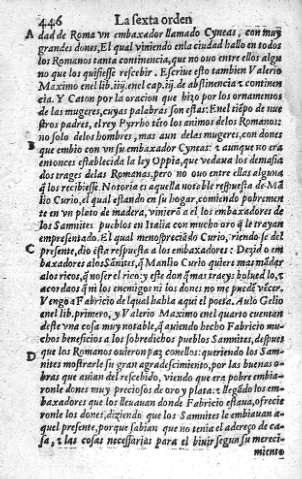 446 La sexta orden
A dad de Roma vn embaxador llamado Cyneas, con muy
grandes dones. El qual viniendo en la ciudad hallo en todos
los Romanos tanta continencia, que no ouo entre ellos algu
no que los quisiesse rescebir. Escriue esto tambien Valerio
Maximo enel lib. iiij. enel cap. iij. de abstinencia & continen
cia. Y Caton por la oracion que hizo por los ornamentos
de las mugeres, cuyas palabras son estas: Enel tiẽpo de nue
stros padres, el rey Pyrrho tẽto los animos delos Romanos:
no solo delos hombres, mas aun delas mugeres, con dones
B que embio con vn su embaxador Cyneas: & aunque no era
entonces establecida la ley Oppia, que vedaua los demasia
dos trages delas Romanas, pero no ouo entre ellas alguna
q̃ los recibiesse. Notoria es aquella notable respuesta de Mã
lio Curio, el qual estando en su hogar, comiendo pobremẽ
te en vn plato de madera, vinierõ a el los embaxadores de
los Samnites pueblos en Italia con mucho oro q̃ le trayan
empresentado. El qual menospreciãdo Curio, riendose del
C presente, dio esta respuesta a los embaxadores: Dezid o em
baxadores alos Sãnites, q̃ Manlio Curio quiere mas mãdar
alos ricos, q̃ no ser el rico: y este don q̃ mas traeys: bolued lo, &
acordaos q̃ ni los enemigos ni los dones no me puedẽ vẽcer.
Vengo a Fabricio de lqual habla aqui el poeta. Aulo Gelio
enel lib. primero, y Valerio Maximo enel quarto cuentan
deste vna cosa muy notable, q̃ auiendo hecho Fabricio mu-
chos beneficios a los sobredichos pueblos Samnites, despues
D que los Romanos ouieron paz conellos: queriendo los Sam-
nites mostrarle su gran agradescimiento, por las buenas o-
bras que auian del rescebido, viendo que era pobre embia-
ronle dones muy preciosos de oro y plata: & llegado los em-
baxadores que los lleuauan donde Fabricio estaua, ofrecie
ronle los dones, diziendo que los Samnites le embiauan a-
quel presente, porque sabian que no tenia el adereço de ca-
sa, & las cosas necessarias para el biuir segun su mereci-
miento